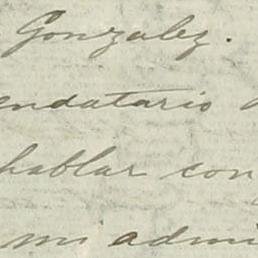 Gonzalez.
endatario
hablar con
mi admi